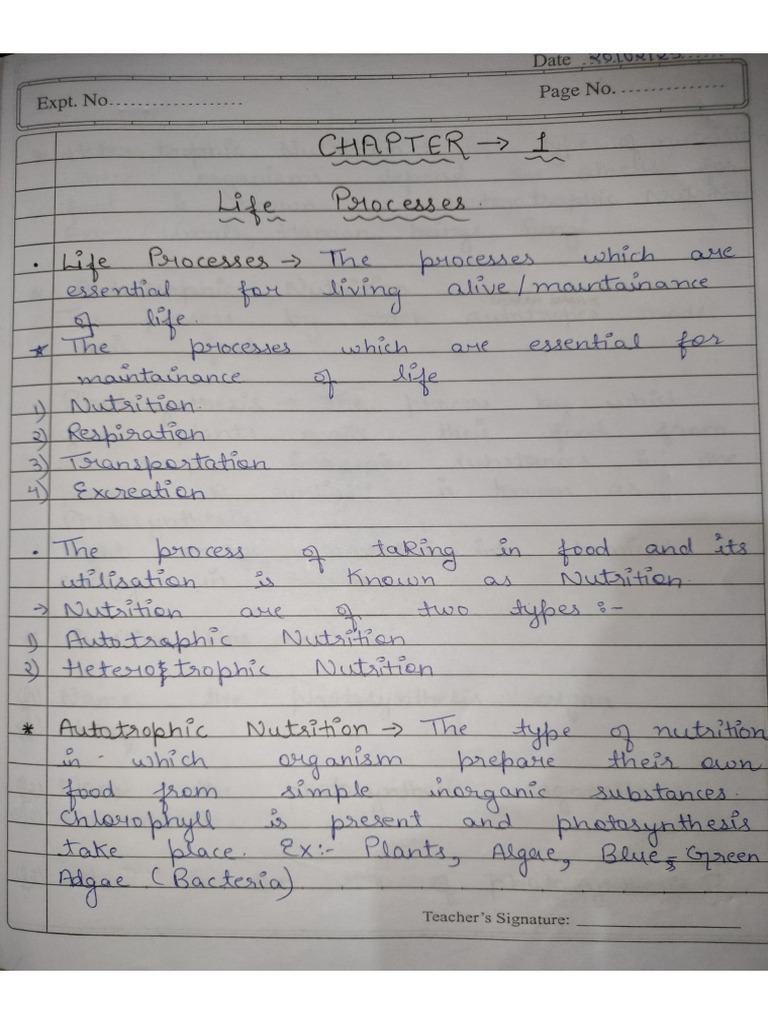 Date
Expt. No...................
Page No. ...............
CHAPTER → 1
Life Processes.
• Life Processes → The processes which are
essential for living alive/maintainance
of life.
* The processes which are essential for
maintainance of life
1) Nutrition.
2) Respiration
3) Transportation
4) Excreation
• The process of taking in food and its
utilisation is known as Nutrition.
→ Nutrition are of two types :-
1) Autotraphic Nutrition
2) Heterotrophic Nutrition
* Autotrophic Nutrition → The type of nutrition
in which organism prepare their own
food from simple inorganic substances.
Chlorophyll is present and photosynthesis
take place. Ex:- Plants, Algae, Blue-Green
Adgae (Bacteria)
Teacher's Signature: ____________________